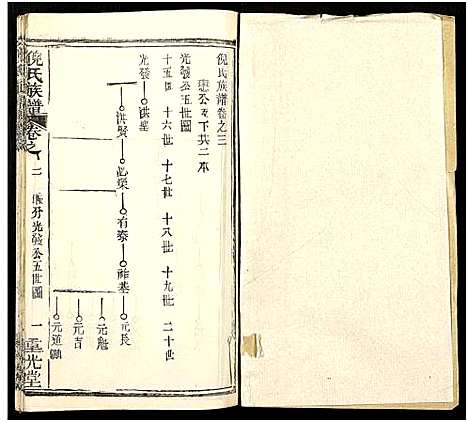 倪氏族譜卷之三
公房下共二本
光發公五世圖
十五世 十六世 十七世 十八世 十九世 二十世
光發 洪基
洪賢 必榮 有泰 裕基 元長
元魁
元吉
元道
倪氏族譜卷之二 房分光發公五世圖 一 重光堂